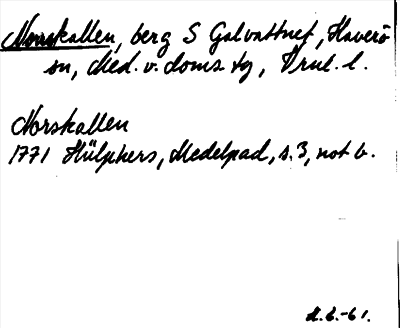 Norskallen, berg S Galvattnet, Haverö
sn, Med. v. doms. tg, Vrnl. l.
Norskallen
1771 Hülphers, Medelpad, s. 3, not b.